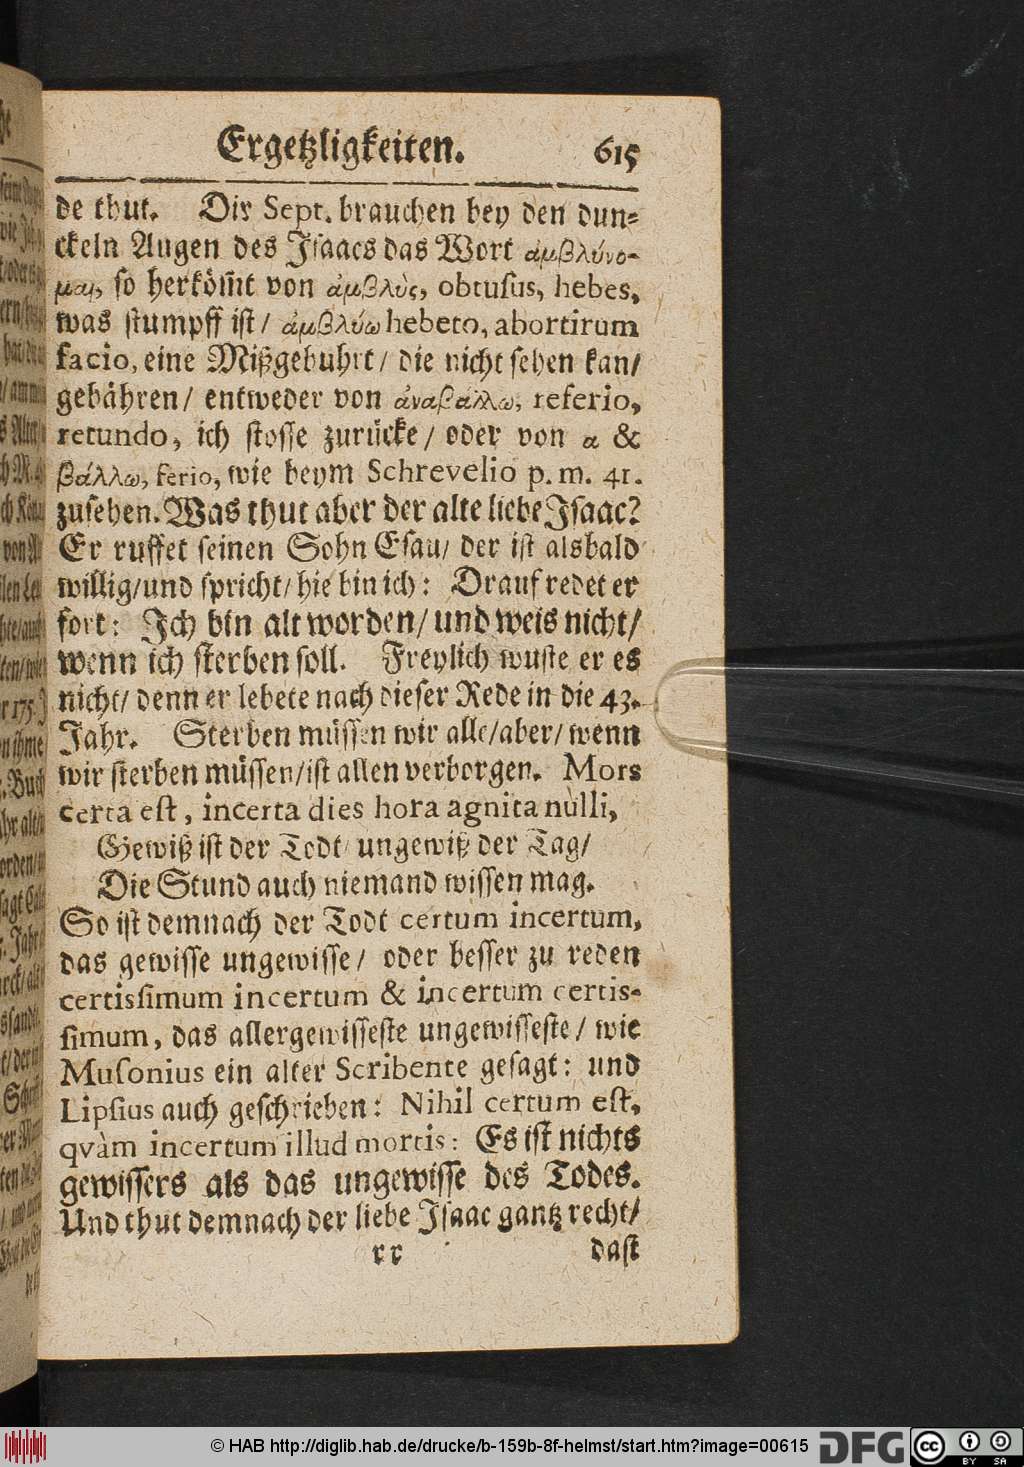 Ergetzligkeiten. 615
de thut. Dir Sept. brauchen bey den dun-
ckeln Augen des Isaacs das Wort ἀμβλύνο-
μαι, so herköm̃t von ἀμβλὺς, obtusus, hebes,
was stumpff ist / ἀμβλύω hebeto, abortirum
facio, eine Mißgebuhrt / die nicht sehen kan /
gebähren / entweder von ἀναβάλλω, referio,
retundo, ich stosse zurücke / oder von α &
βάλλω, ferio, wie beym Schrevelio p. m. 41.
zusehen. Was thut aber der alte liebe Isaac?
Er ruffet seinen Sohn Esau / der ist alsbald
willig / und spricht / hie bin ich: Drauf redet er
fort: Ich bin alt worden / und weis nicht /
wenn ich sterben soll. Freylich wuste er es
nicht / denn er lebete nach dieser Rede in die 43.
Jahr. Sterben müssen wir alle / aber / wenn
wir sterben müssen / ist allen verborgen. Mors
certa est, incerta dies hora agnita nulli,
Gewiß ist der Todt / ungewiß der Tag /
Die Stund auch niemand wissen mag.
So ist demnach der Todt certum incertum,
das gewisse ungewisse / oder besser zu reden
certissimum incertum & incertum certis-
simum, das allergewisseste ungewisseste / wie
Musonius ein alter Scribente gesagt: und
Lipsius auch geschrieben: Nihil certum est,
qvàm incertum illud mortis: Es ist nichts
gewissers als das ungewisse des Todes.
Und thut demnach der liebe Isaac gantz recht /
rr dast
© HAB http://diglib.hab.de/drucke/b-159b-8f-helmst/start.htm?image=00615 DFG cc BY SA